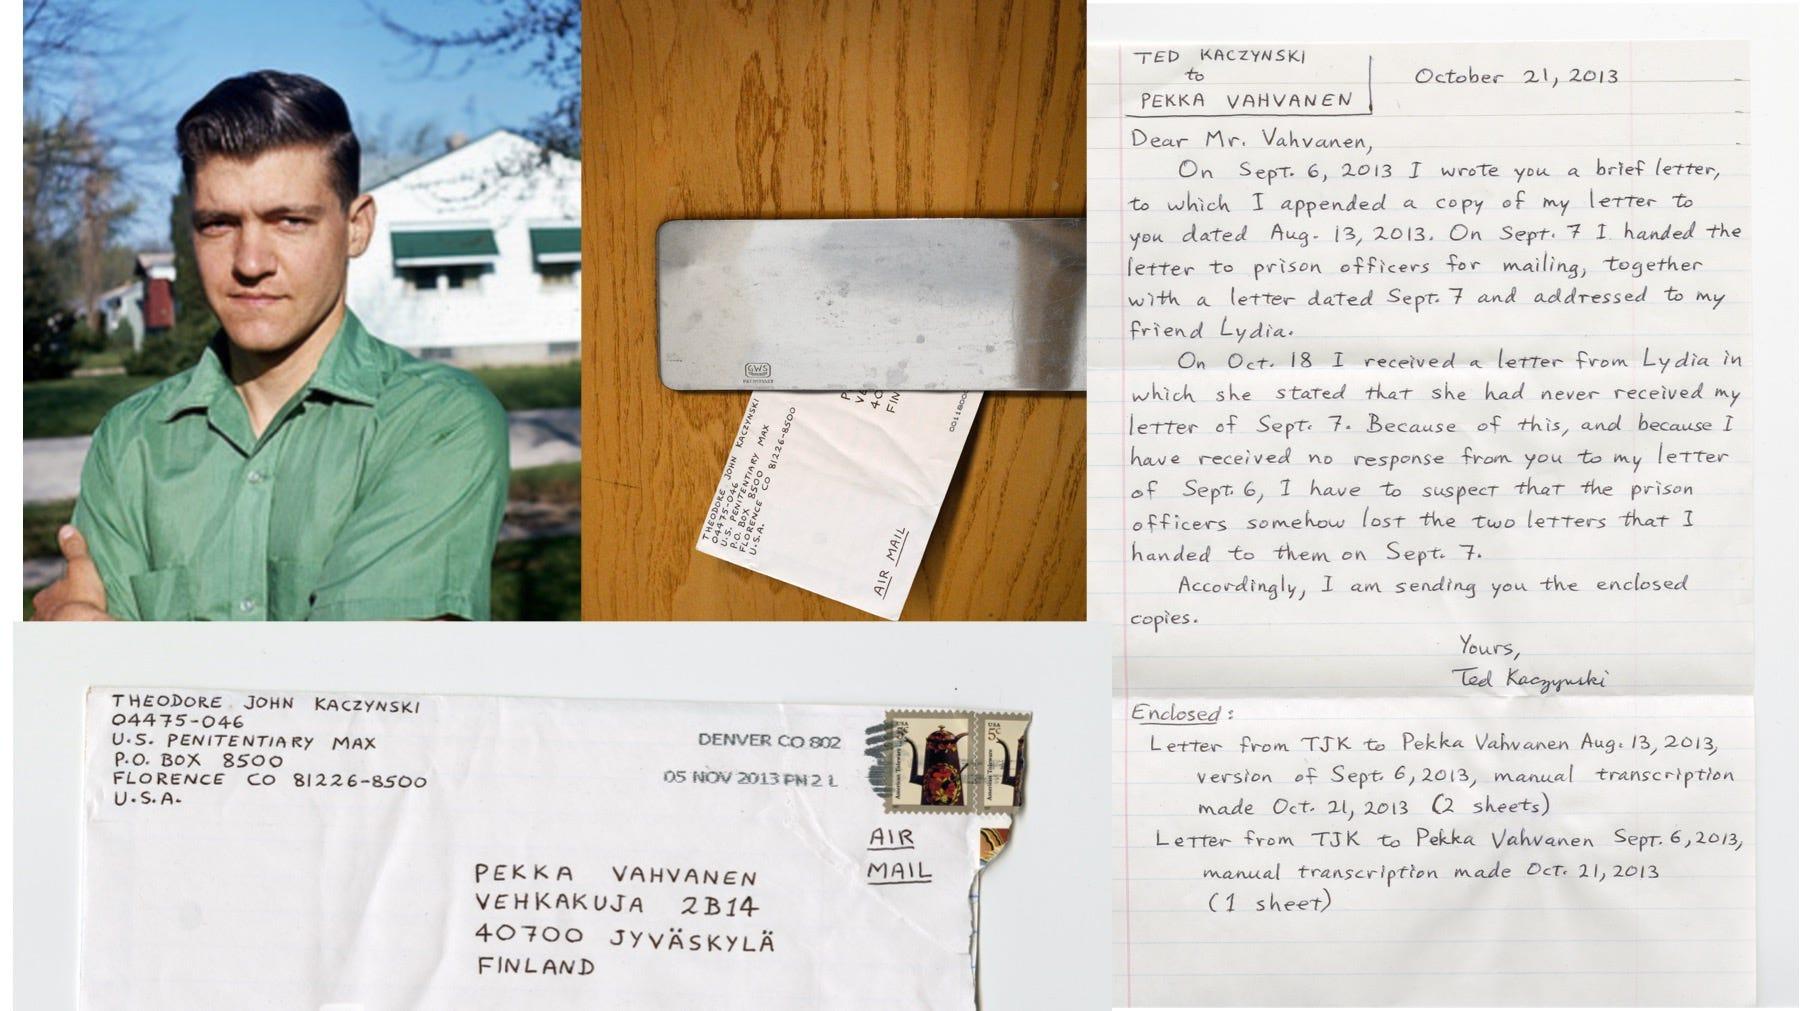 TED KACZYNSKI
to
PEKKA VAHVANEN
October 21, 2013
Dear Mr. Vahvanen,
On Sept. 6, 2013 I wrote you a brief letter,
to which I appended a copy of my letter to
you dated Aug. 13, 2013. On Sept. 7 I handed the
letter to prison officers for mailing, together
with a letter dated Sept. 7 and addressed to my
friend Lydia.
On Oct. 18 I received a letter from Lydia in
which she stated that she had never received my
letter of Sept. 7. Because of this, and because I
have received no response from you to my letter
of Sept. 6, I have to suspect that the prison
officers somehow lost the two letters that I
handed to them on Sept. 7.
Accordingly, I am sending you the enclosed
copies.
Yours,
Ted Kaczynski
Enclosed:
Letter from TJK to Pekka Vahvanen Aug. 13, 2013,
version of Sept. 6, 2013, manual transcription
made Oct. 21, 2013 (2 sheets)
Letter from TJK to Pekka Vahvanen Sept. 6, 2013,
manual transcription made Oct. 21, 2013
(1 sheet)
GWS
THEODORE JOHN KACZYNSKI
04475-046
U.S. PENITENTIARY MAX
P.O. BOX 8500
FLORENCE CO 81226-8500
U.S.A.
P
VE
40
FIN
AIR MAIL
THEODORE JOHN KACZYNSKI
04475-046
U.S. PENITENTIARY MAX
P.O. BOX 8500
FLORENCE CO 81226-8500
U.S.A.
DENVER CO 802
05 NOV 2013 PM 2 L
USA
5c
American Toleware
USA
5c
American Toleware
AIR
MAIL
PEKKA VAHVANEN
VEHKAKUJA 2B14
40700 JYVÄSKYLÄ
FINLAND